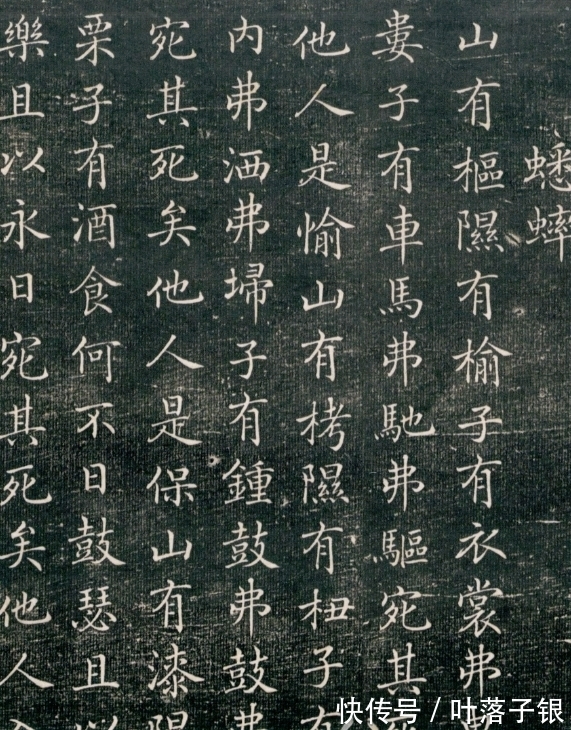 蟋蟀
山有樞隰有榆子有衣裳弗
婁子有車馬弗馳弗驅宛其
他人是愉山有栲隰有杻子有
内弗洒弗埽子有鍾鼓弗鼓弗
宛其死矣他人是保山有漆隰
栗子有酒食何不日鼓瑟且以
樂且以永日宛其死矣他人入
快传号 / 叶落子银